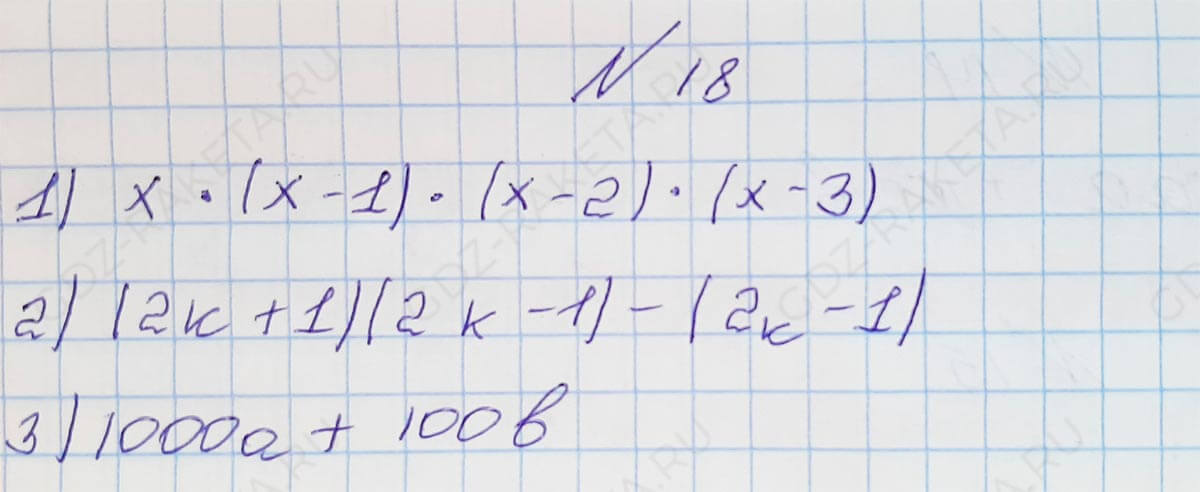 № 18
1) x · (x - 1) · (x - 2) · (x - 3)
2) (2к + 1)(2к - 1) - (2к - 1)
3) 1000а + 100в
GDZ-RAKETA.RU